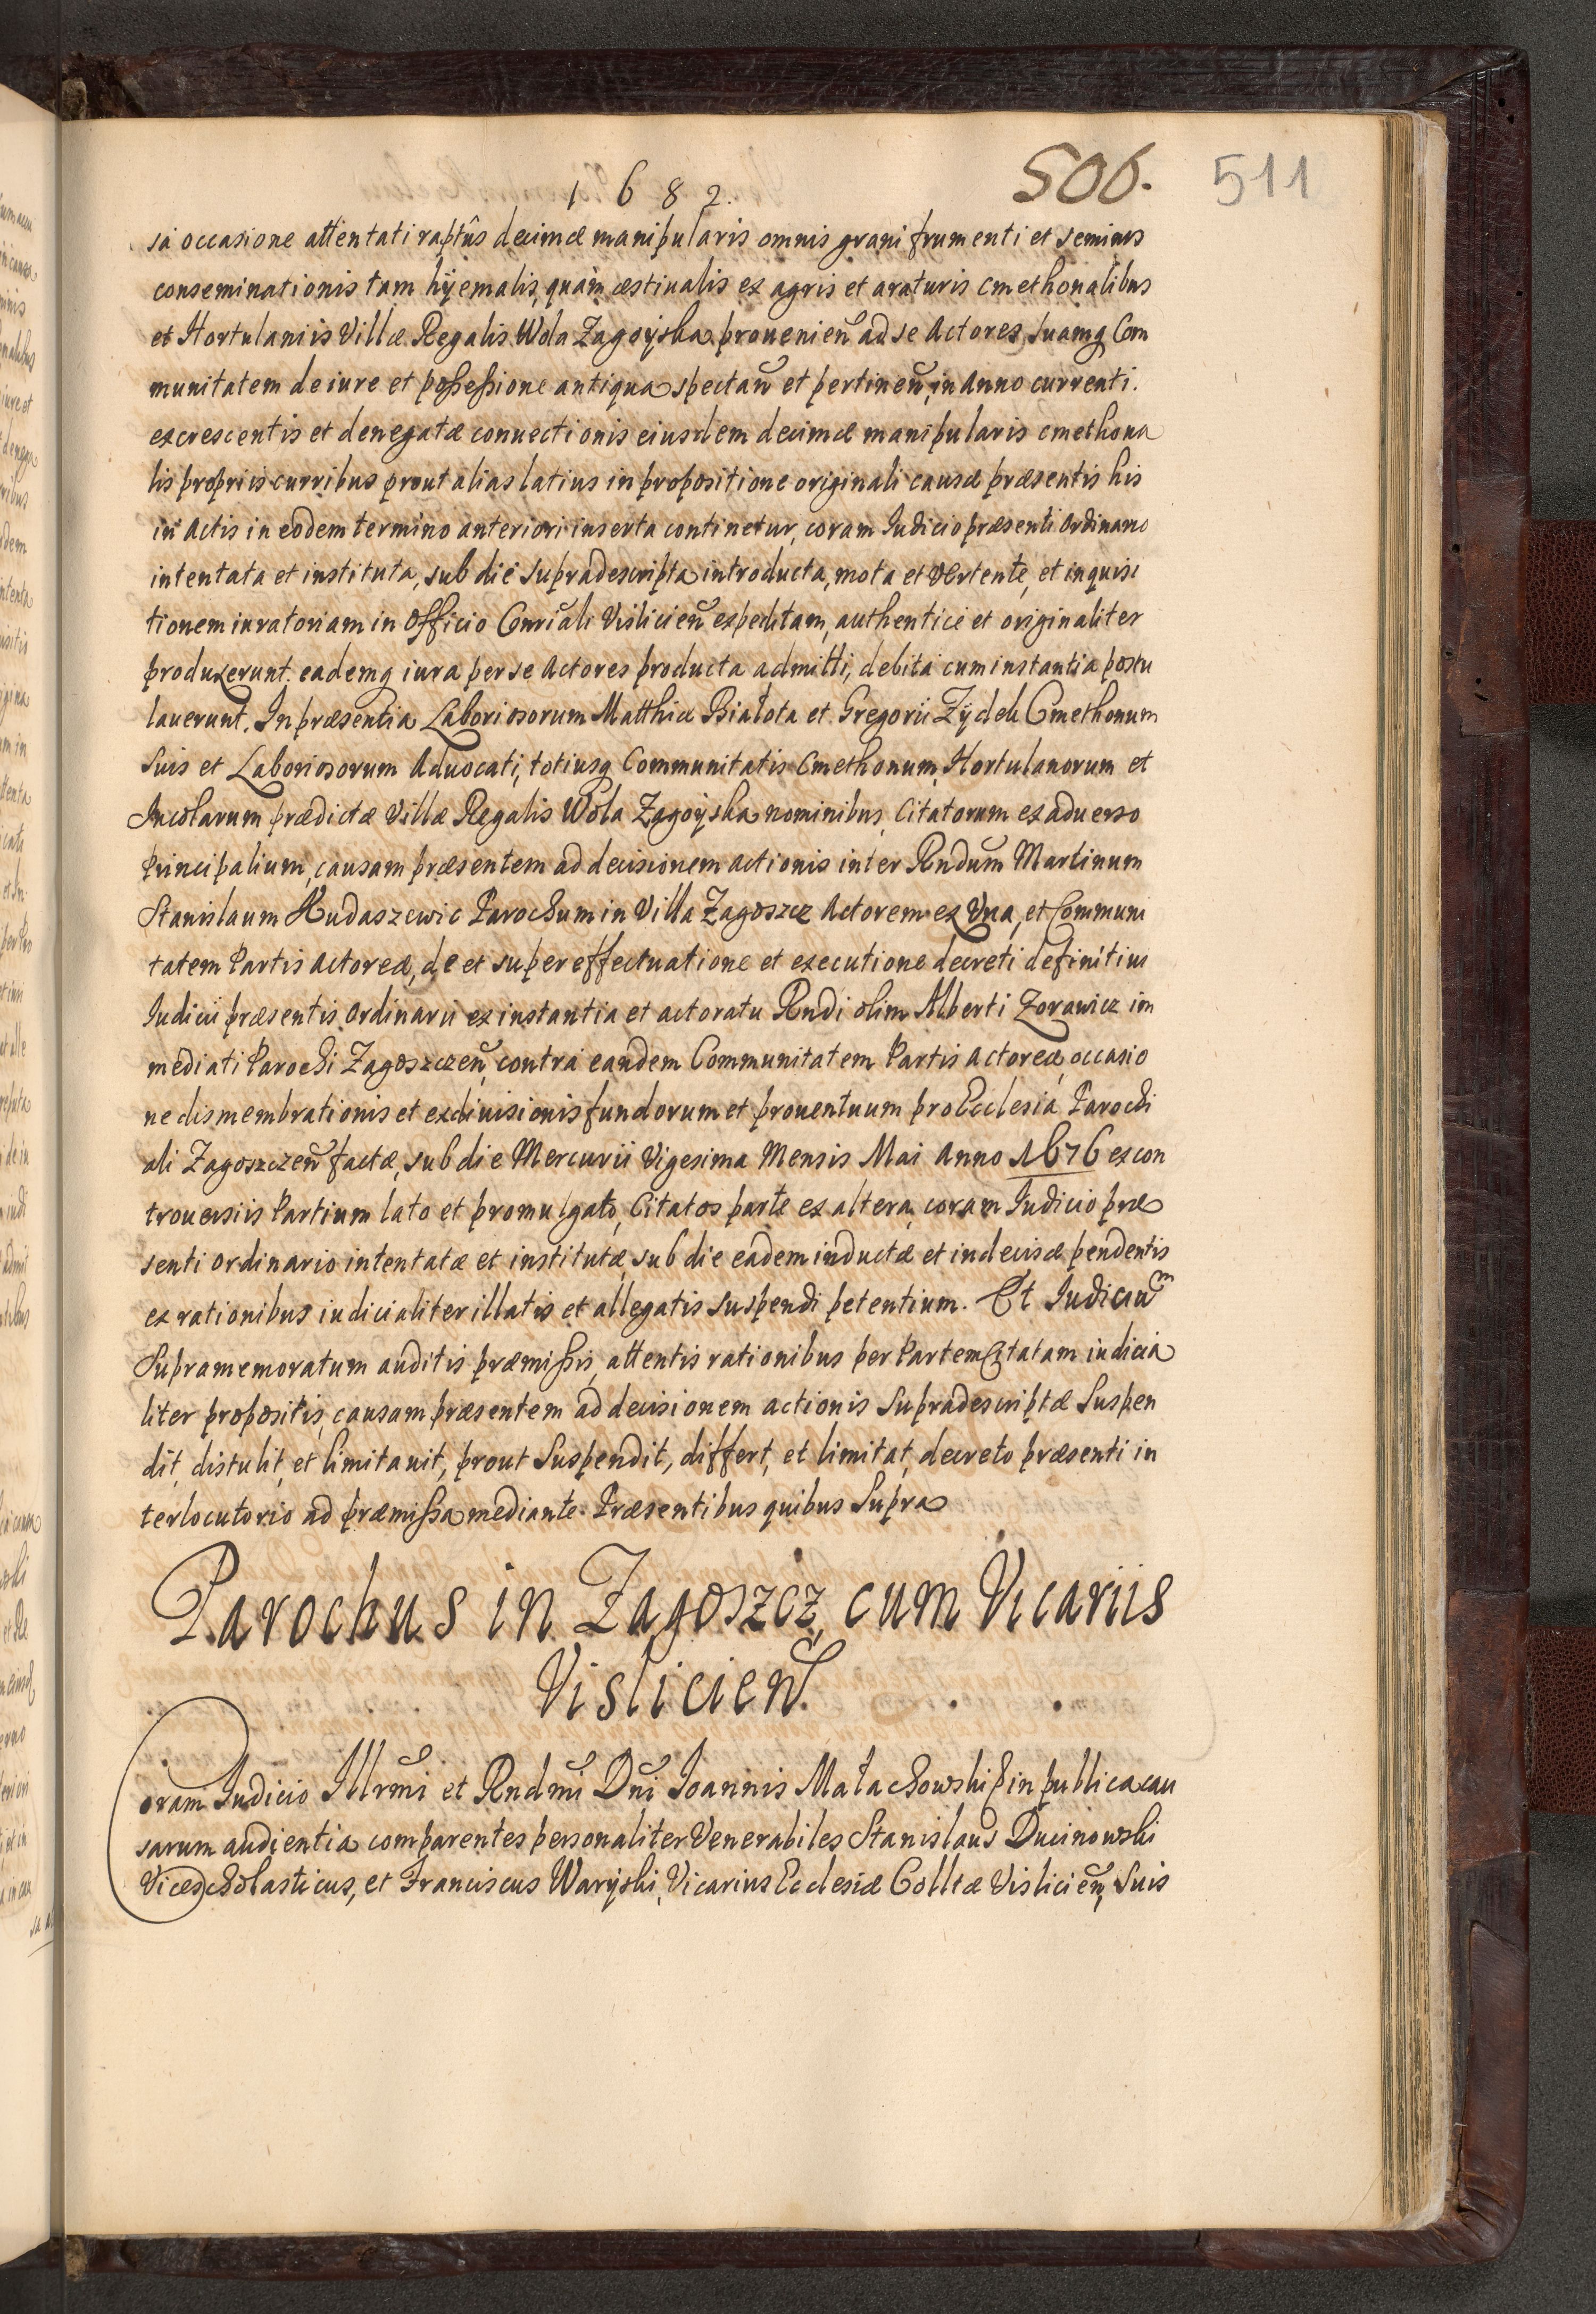 1682.
506. 511
sa occasione attentati raptûs decimæ manipularis omnis grani frumenti et seminis
conseminationis tam hÿemalis, quam æstiualis ex agris et araturis cmethonalibus
et Hortulaniis Villæ Regalis Wola Zagoÿska prouenień ad se Actores suamq Com
munitatem de iure et possessione antiqua spectań et pertineń, in Anno currenti.
excrescentis et denegatæ conuectionis eiusdem decimæ manipularis cmethona
lis propriis curribus prout alias latius in propositione originali causæ præsentis his
in Actis in eodem termino anteriori inserta continetur, coram Iudicio præsenti Ordinario
intentata et instituta, sub die supradescripta introducta, mota et vertente, et inquisi
tionem iuratoriam in Officio Consiali Vislicień expeditam, authentice et originaliter
produxerunt. eademq iura per se Actores producta admitti, debita cum instantia postu
lauerunt. In præsentia Laboriosorum Matthiæ Białota et Gregorii Zÿdek Cmethonum
Suis et Laboriosorum Aduocati, totiusq Communitatis Cmethonum, Hortulanorum et
Incolarum prædictæ Villæ Regalis Wola Zagoÿska nominibus, Citatorum ex aduerso
Principalium, causam præsentem ad decisionem actionis inter Rndum Martinum
Stanislaum Hudaszewic Parochum in Villa Zagoszcz Actorem ex Vna, et Communi
tatem Partis Actoreæ, de et super effectuatione et executione decreti definitiui
Iudicii præsentis Ordinarii ex instantia et actoratu Rndi olim Alberti Zorawicz im
mediati Parochi Zagoszczeń, contra eandem Communitatem Partis Actoreæ, occasio
ne dismembrationis et exdiuisionis fundorum et prouentuum pro Ecclesia Parochi
ali Zagoszczeń factæ, sub die Mercurii Vigesima Mensis Mai Anno 1676 ex con
trouersiis Partium lato et promulgato, Citatos parte ex altera, coram Iudicio præ
senti Ordinario intentatæ et institutæ, sub die eadem inductæ et indecisæ pendentis
ex rationibus iudicialiter illatis et allegatis suspendi petentium. Et Iudicium
Supramemoratum auditis præmissis, attentis rationibus per Partem Citatam iudicia
liter propositis, causam præsentem ad decisionem actionis Supradescriptæ Suspen
dit, distulit, et limitauit, prout Suspendit, differt, et limitat, decreto præsenti in
terlocutorio ad præmissa mediante. Præsentibus quibus Supra
Parochus in Zagoszcz, cum Vicariis
Vislicień.
Coram Iudicio Illrmi et Rndmi Dni Ioannis Małachowski in publica cau
sarum audientia comparentes personaliter Venerabiles Stanislaus Ducinowski
Vicescholasticus, et Franciscus Warÿski, Vicarius Ecclesiæ Colltæ Vislicień, Suis